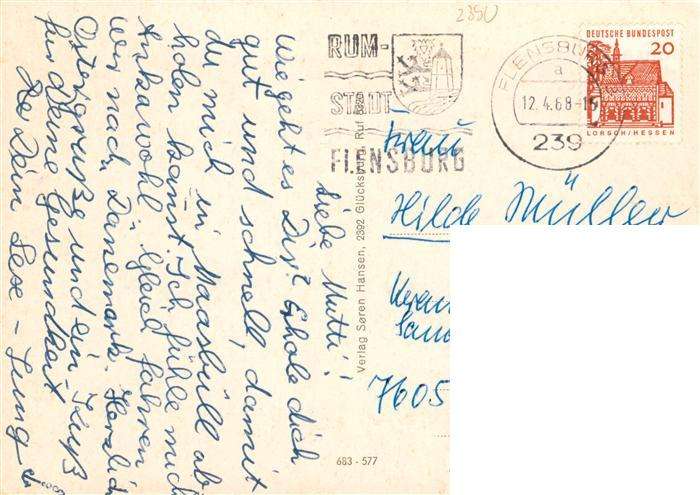 Liebe Mutti!
Wie geht es Dir? Erhole dich
gut und schnell, damit
du mich in Maasbüll ab
holen kannst. Ich fühle mich
wohl. Gleich fahren
wir nach Dänemark. Herzliche
Ostergrüße und ein Kuß
für Deine Gesundheit
Dein
2390
RUM-
STADT
FLENSBURG
FLENSBURG
a
12.4.68-15
239
DEUTSCHE BUNDESPOST
20
LORSCH/HESSEN
Verlag Søren Hansen, 2392 Glücksburg, Ruf 8320
Frau
Hilde Müller
7605
683 - 577